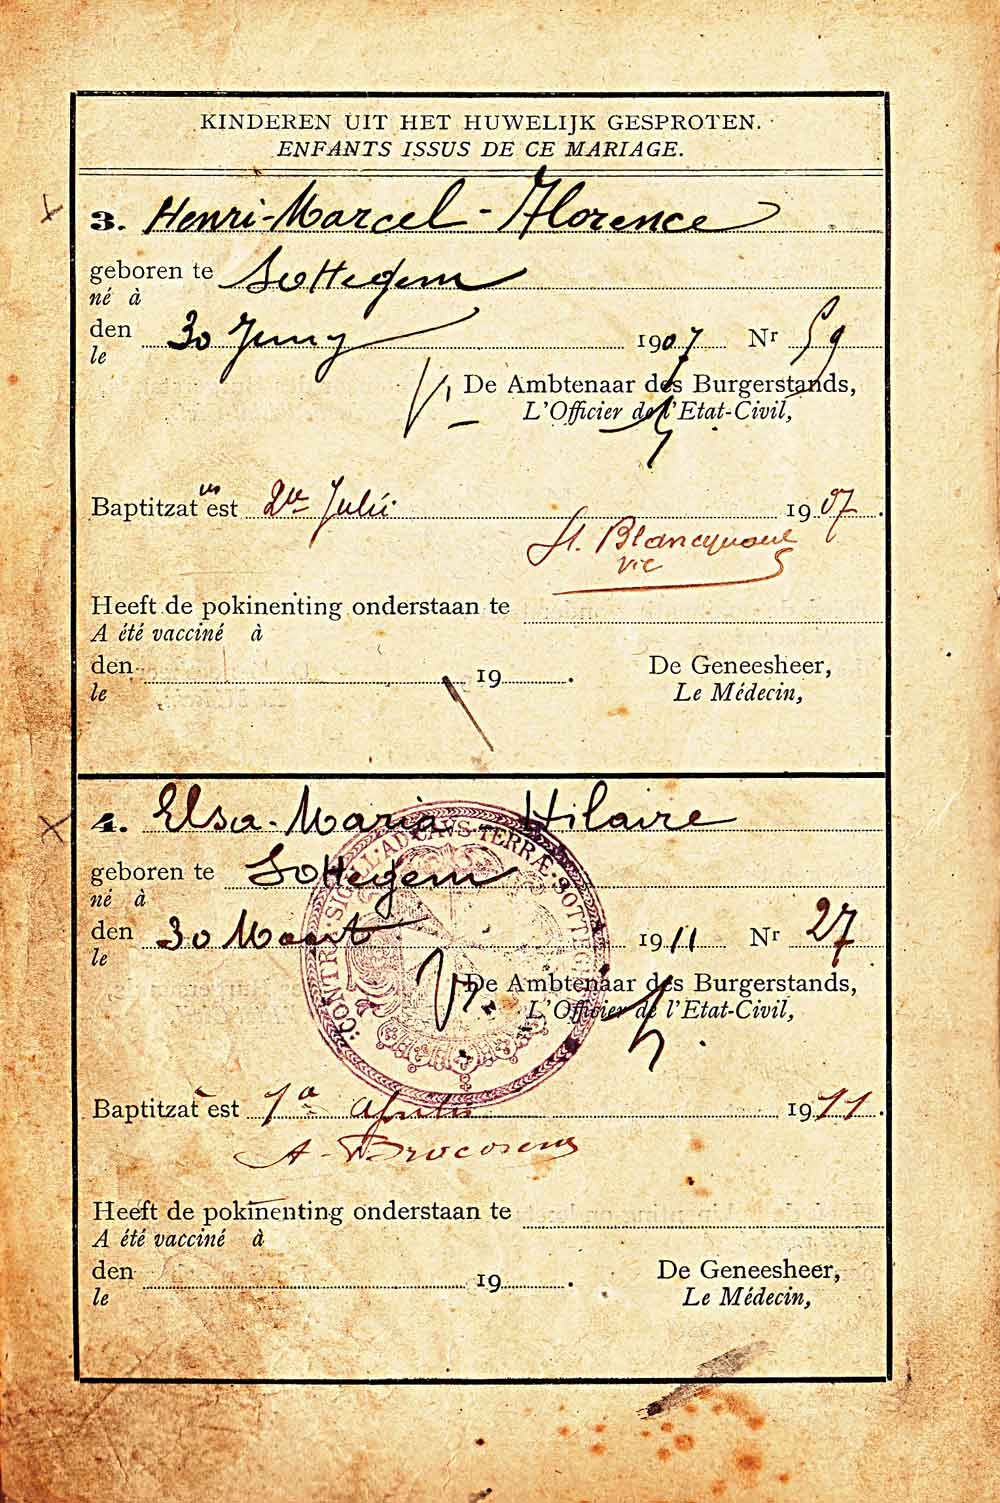 KINDEREN UIT HET HUWELIJK GESPROTEN.
ENFANTS ISSUS DE CE MARIAGE.
3. Henri-Marcel-Florence
geboren te Sottegem
né à
den 30 Juny 1907 Nr 59
le
De Ambtenaar des Burgerstands,
L'Officier de l'Etat-Civil,
Baptitzatus est 2de Julii 1907.
vic
Heeft de pokinenting onderstaan te
A été vacciné à
den 19 . De Geneesheer,
le Le Médecin,
4. Elsa-Maria-Hilaire
geboren te Sottegem
né à
den 30 Maart 1911 Nr 27
le
De Ambtenaar des Burgerstands,
L'Officier de l'Etat-Civil,
CONTRA·SIGILL·AD·CAVS·TERRÆ·SOTTEG
Baptitzat est 1a Aprilis 1911.
Heeft de pokinenting onderstaan te
A été vacciné à
den 19 . De Geneesheer,
le Le Médecin,